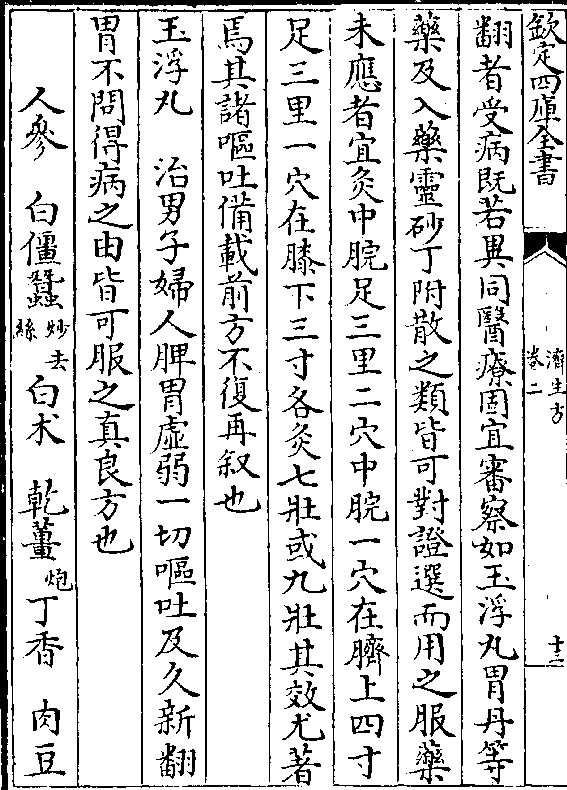 欽定四庫全書
濟生方
卷二
十三
翻者受病既若異同醫療固宜審察如玉浮丸胃丹等
藥及入藥靈砂丁附散之類皆可對證選而用之服藥
未應者宜灸中脘足三里二穴中脘一穴在臍上四寸
足三里一穴在膝下三寸各灸七壯或九壯其效尤著
焉其諸嘔吐備載前方不復再叙也
玉浮丸 治男子婦人脾胃虛弱一切嘔吐及久新翻
胃不問得病之由皆可服之真良方也
人參 白僵蠶炒去絲 白术 乾薑炮 丁香 肉豆